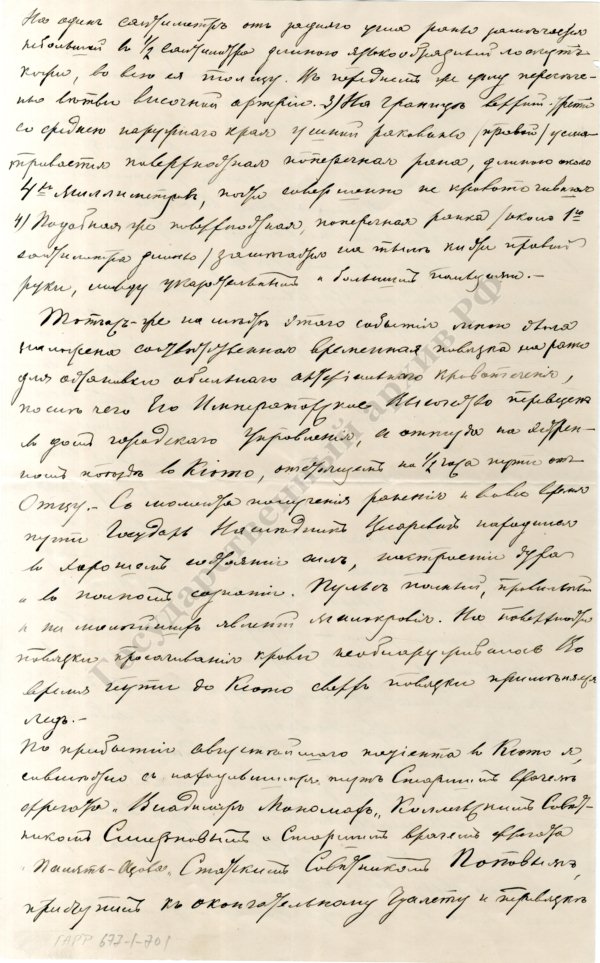 На одинъ сантиметръ отъ задняго угла раны замѣчается
небольшой въ 1/2 сантиметра длиною языкообразный лоскутъ
кожи, во всю ея толщу. Въ переднемъ же углу пересѣче-
ны вѣтви височной артеріи. 3) На границѣ верхней трети
со среднею наружнаго края ушной раковины /правой/ усма-
тривается поверхностная поперечная рана, длиною около
4хъ миллиметровъ, почти совершенно не кровоточившая
4) Подобная же поверхностная, поперечная ранка /около 1го
сантиметра длины/ на тылѣ кисти правой
руки, между указательнымъ и большимъ пальцами.-
Тотчасъ-же на мѣстѣ этого событія мною была
наложена соотвѣтственная временная повязка на рану
для остановки обильнаго артеріальнаго кровотеченія,
послѣ чего Его Императорское Высочество переведенъ
въ домъ городского Управленія, а оттуда на экстрен-
номъ поѣздѣ въ Кіото, отстоящемъ на 1/2 часа пути отъ
Отцу.- Со момента полученія раненія и во все время
пути Государь Наслѣдникъ Цесаревичъ находился
въ хорошемъ состояніи силъ, настроеніи духа
и въ полномъ сознаніи. Пульсъ полный, правильный
и ни малѣйшихъ явленій малокровія. На поверхности
повязки просачиванія крови необнаруживалось. Во
время пути до Кіото сверхъ повязки примѣнялся
ледъ.-
По прибытіи августѣйшаго паціента въ Кіото я,
совмѣстно съ находившимися тутъ Старшимъ врачемъ
фрегата „Владиміръ Мономахъ„ Коллежскимъ Совѣт-
никомъ Смирновымъ и Старшимъ врачемъ фрегата
„Память-Азова„ Статскимъ Совѣтникомъ Поповымъ,
приступилъ къ окончательному туалету и перевязкѣ
ГАРФ 677-1-701
Государственный архив РФ